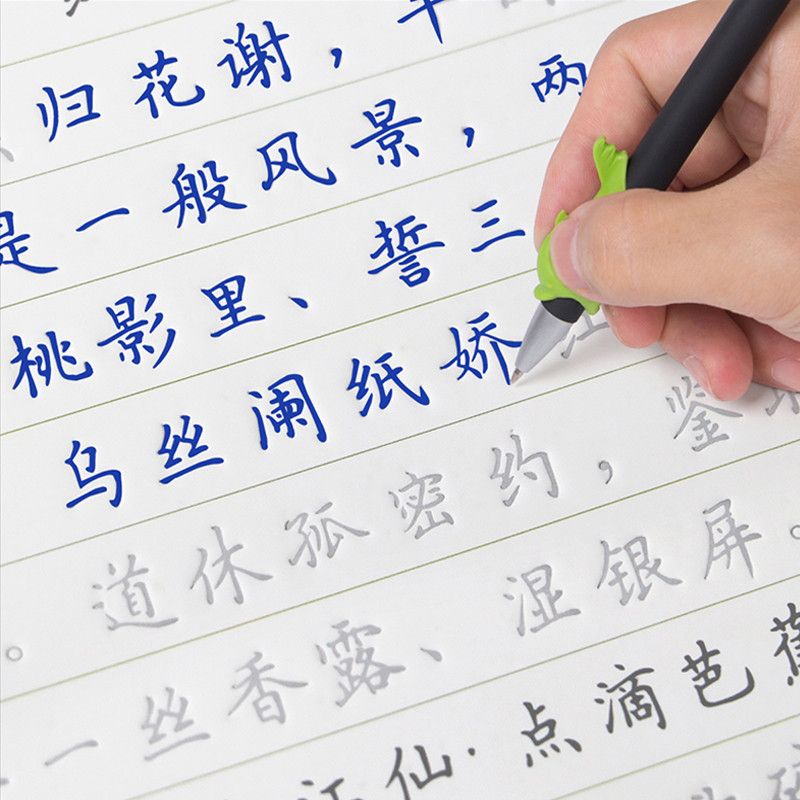 归花谢，
是一般风景，两
桃影里、誓三
乌丝阑纸娇
。道休孤密约，鉴
一丝香露、湿银屏。
江仙·点滴芭蕉